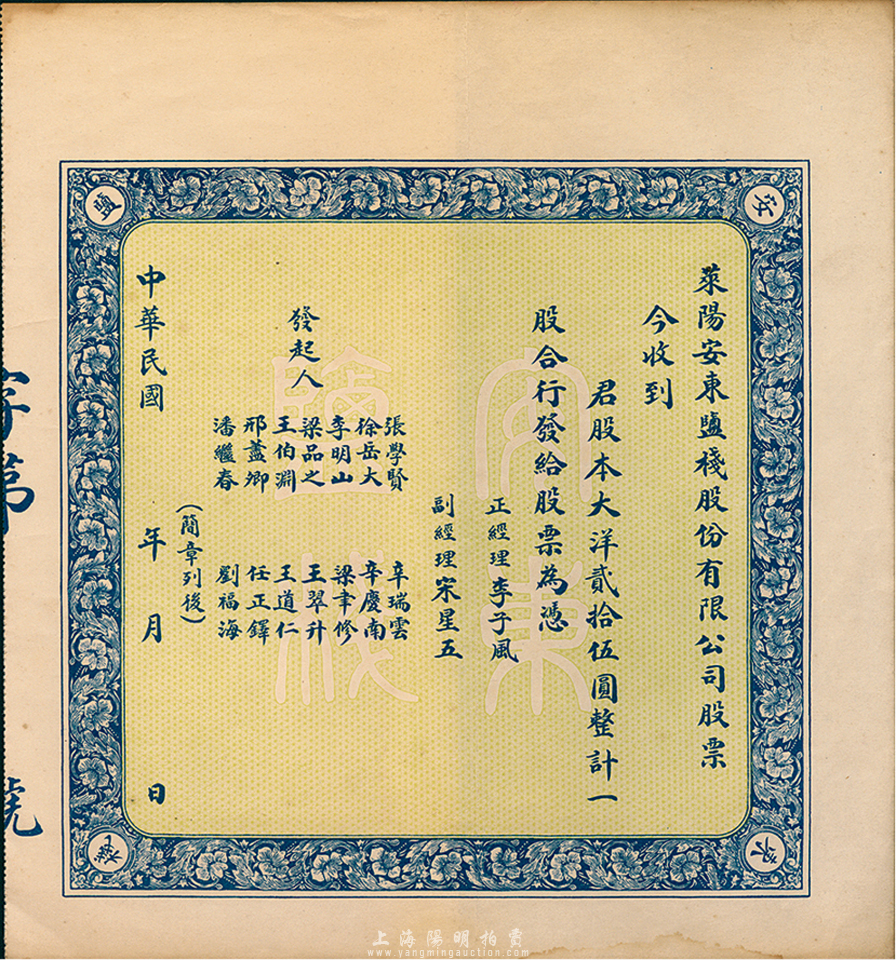 萊陽安東鹽棧股份有限公司股票
今收到
君股本大洋貳拾伍圓整計一
股合行發給股票為憑
正經理李子風
副經理宋星五
發起人
張學賢 辛瑞雲
徐岳大 辛慶南
李明山 梁聿修
梁品之 王翠升
王伯淵 王道仁
邢藎卿 任正鐸
潘繼春 劉福海
(簡章列後)
中華民國 年 月 日
安
東
鹽
棧
安東
鹽棧
字第 號
上海陽明拍賣
www.yangmingauction.com